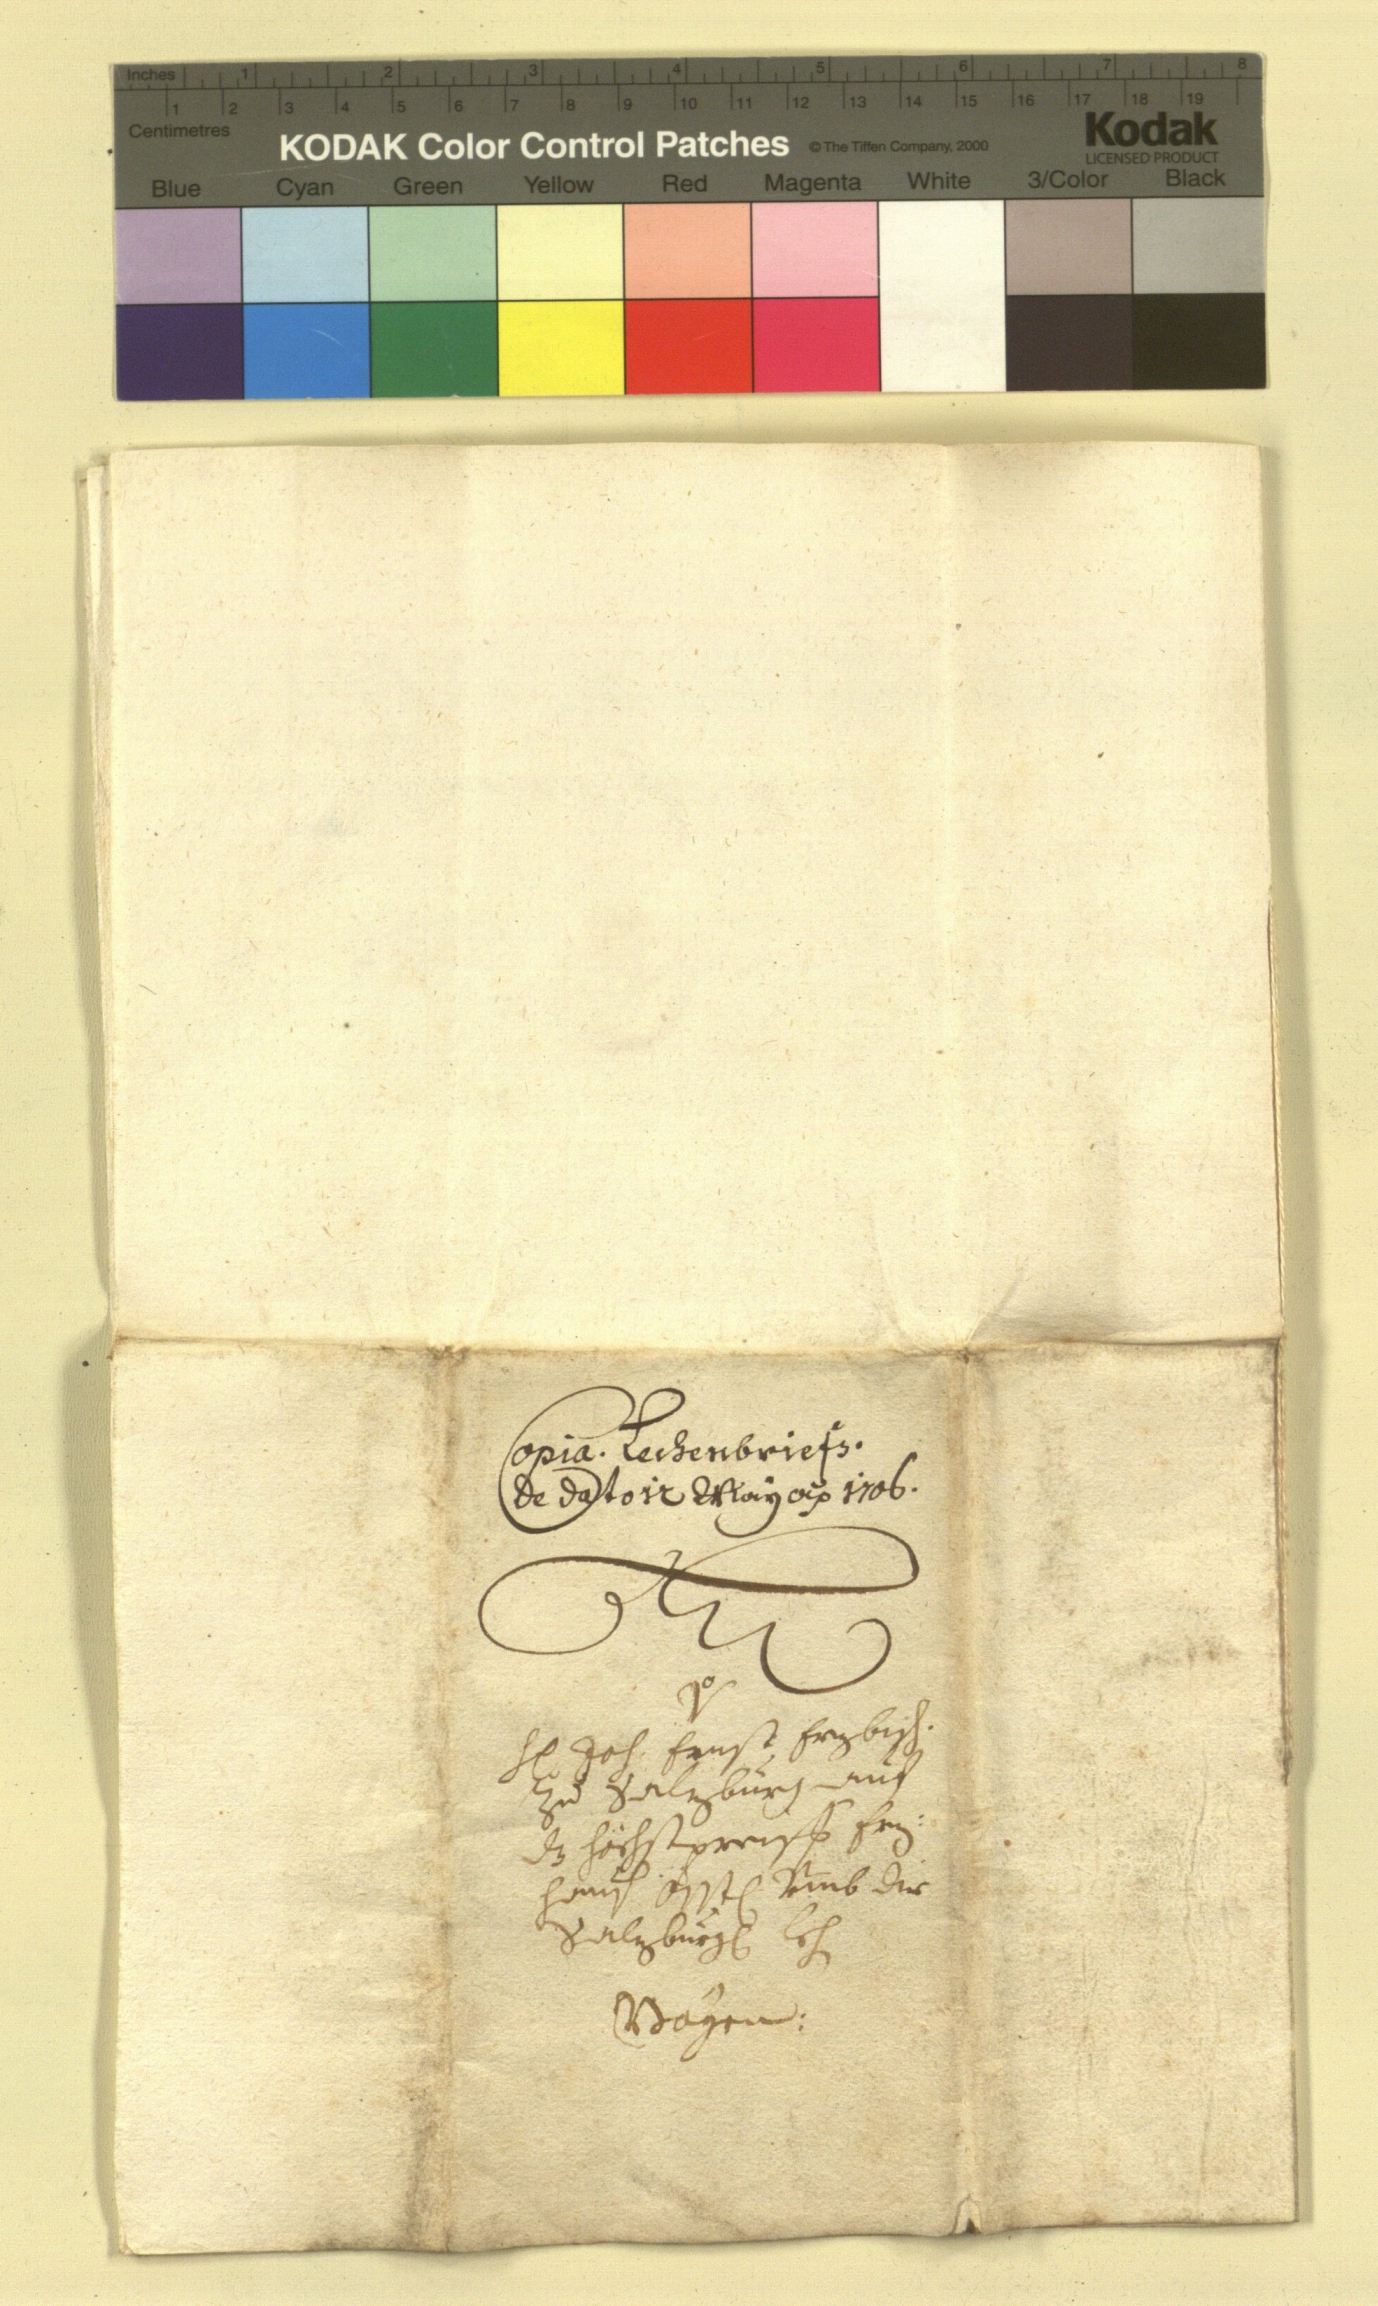 Inches 1 2 3 4 5 6 7 8
1 2 3 4 5 6 7 8 9 10 11 12 13 14 15 16 17 18 19
Centimetres
KODAK Color Control Patches © The Tiffen Company, 2000
Kodak
LICENSED PRODUCT
Blue Cyan Green Yellow Red Magenta White 3/Color Black
Copia. Lechenbriefs.
de dato 12 May ao 1706.
Joh. Ernst Erzbisch.
zu Salzburg auf
dz höchstpreisl Erz:
hauß Össt Vmb die
Salzburg Leh